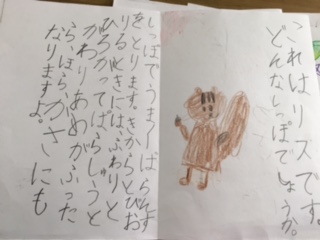 これはリスです。
どんなしっぽでしょうか。
しっぽでうまくばらんす
をとります。きからとびお
りるときにはふわりと
ひろがってぱらしゅうと
がわりあめがふった
ら、ほらかさにも
なりますよ。